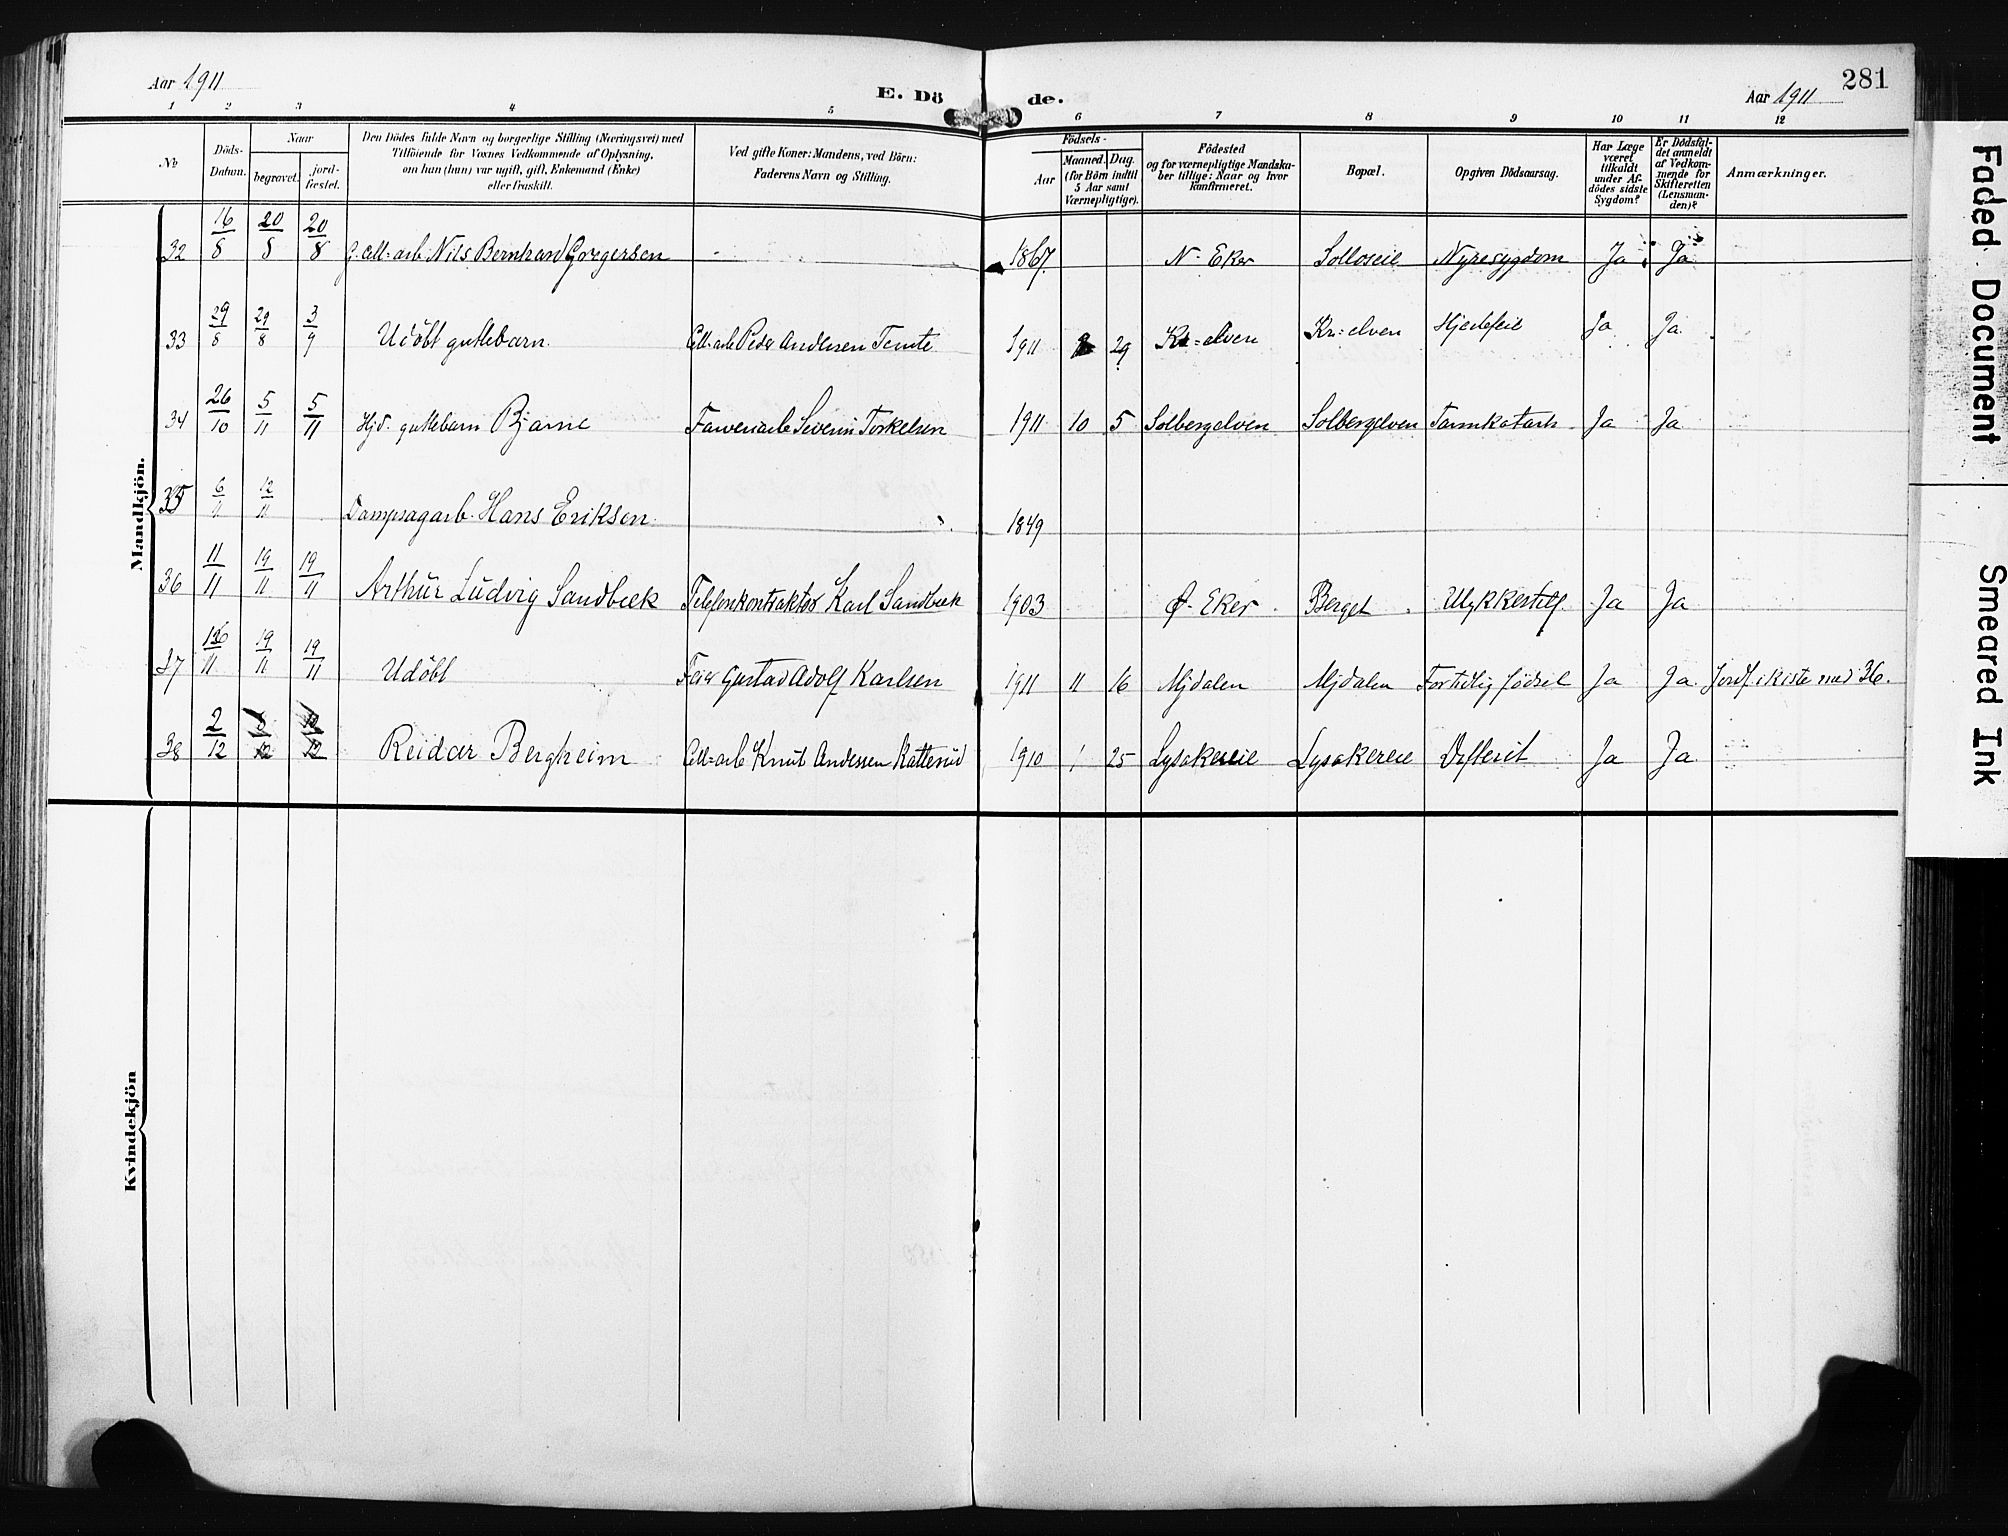 Aar 1911
E. Döde.
Aar 1911
281
1 2 3 4 5 6 7 8 9 10 11 12
№
Döds-Datum.
Naar
begravet.
jord-fæstet.
Den Dödes fulde Navn og borgerlige Stilling (Næringsvei) med
Tilföiende for Voxnes Vedkommende af Oplysning,
om han (hun) var ugift, gift, Enkemand (Enke)
eller fraskilt.
Ved gifte Koner: Mandens, ved Börn:
Faderens Navn og Stilling.
Födsels-
Aar
Maaned. Dag.
(for Börn indtil
5 Aar samt
Værnepligtige).
Födested
og for værnepligtige Mandska-
ber tillige: Naar og hvor
konfirmeret.
Bopæl.
Opgiven Dödsaarsag.
Har Læge
været
tilkaldt
under Af-
dödes sidste
Sygdom?
Er Dödsfal-
det anmeldt
af Vedkom-
mende for
Skifteretten
(Lensman-
den)?
Anmærkninger.
Mandkjön.
32 16/8 20/8 20/8 G. Cell-arb. Nils Berntzard Gregersen 1867. N-Eker Solloseie Nyresygdom Ja Ja
33 29/8 29/8 3/9 Udöbt guttebarn. Cell-arb Peder Andersen Temte 1911 29 Kr=elven Kr=elven Hjertefeil Ja Ja.
34 26/10 5/11 5/11 Hjd. guttebarn Bjarne Farveriarb Severin Torkelsen 1911 10 5 Solbergelven Solbergelven Tarmkatarh Ja Ja
35 6/11 12/11 Dampsagarb. Hans Eriksen. 1849
36 11/11 19/11 19/11 Arthur Ludvig Sandbæk Telefonkontraktør Karl Sandbæk 1903 Ø-Eker Berget Ulykkestilf. Ja Ja
37 16/11 19/11 19/11 Udöbt Feier Gustav Adolf Karlsen 1911 11 16 Mjdalen Mjdalen Fortidlig födsel Ja Ja. Jordf. i kiste med 36.
38 2/12 Reidar Bergheim Cell=arb Knut Andersen Katterud 1910 1 25 Lysakereie Lysakereie Difterit Ja Ja.
Kvindekjön
Faded Document
Smeared Ink